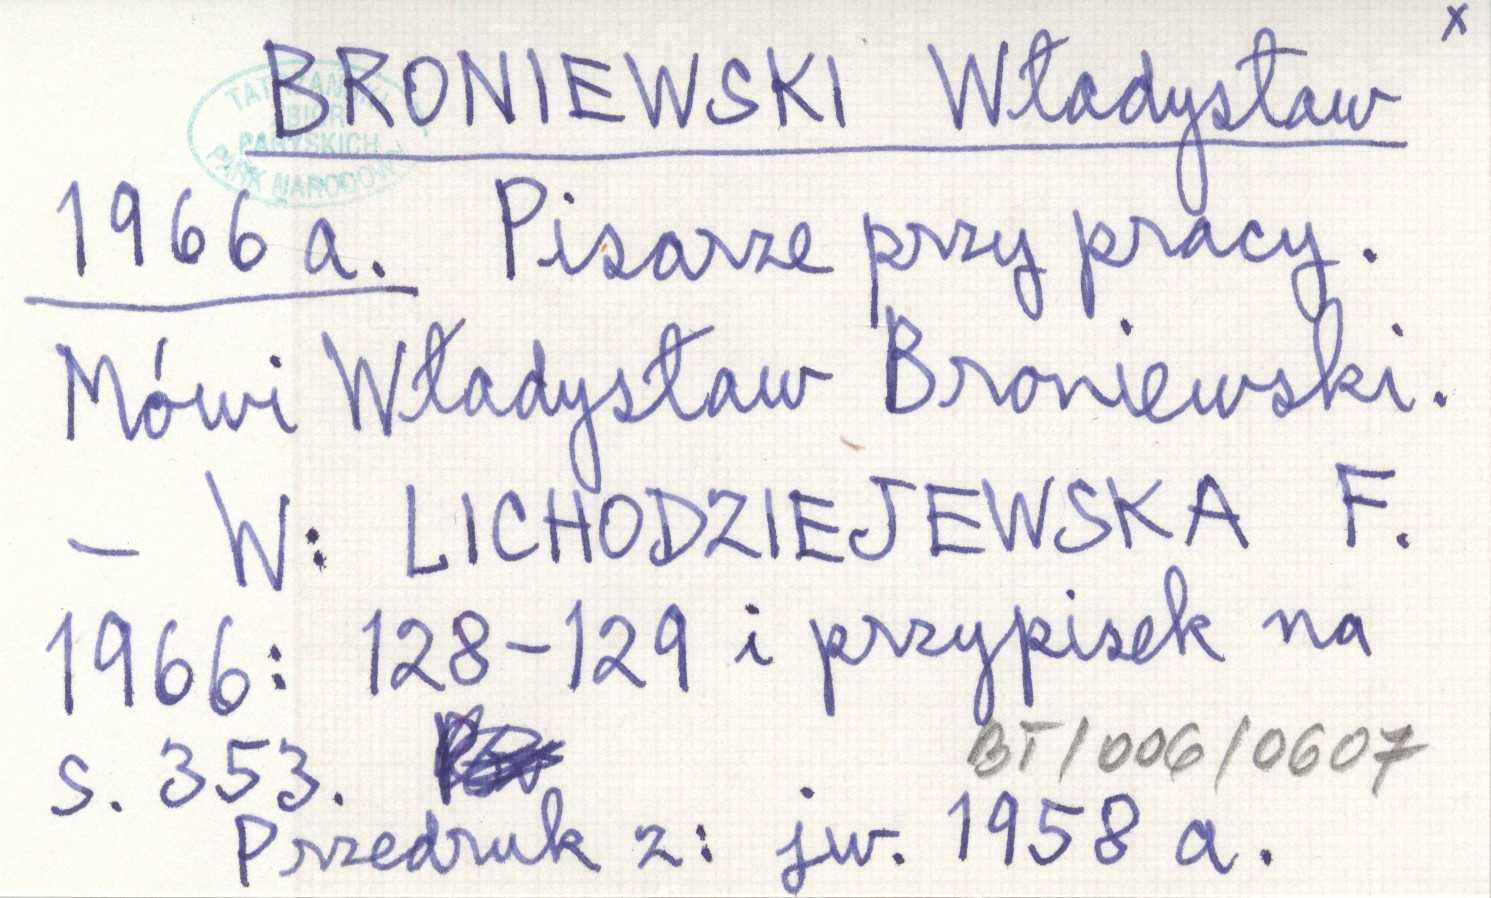 x
BRONIEWSKI Władysław
TATRZAŃSKI
ZBIÓR
PARYSKICH
PARK NARODOWY
1966 a. Pisarze przy pracy.
Mówi Władysław Broniewski.
– W: LICHODZIEJEWSKA F.
1966: 128–129 i przypisek na
s. 353.
BT/006/0607
Przedruk z: jw. 1958 a.